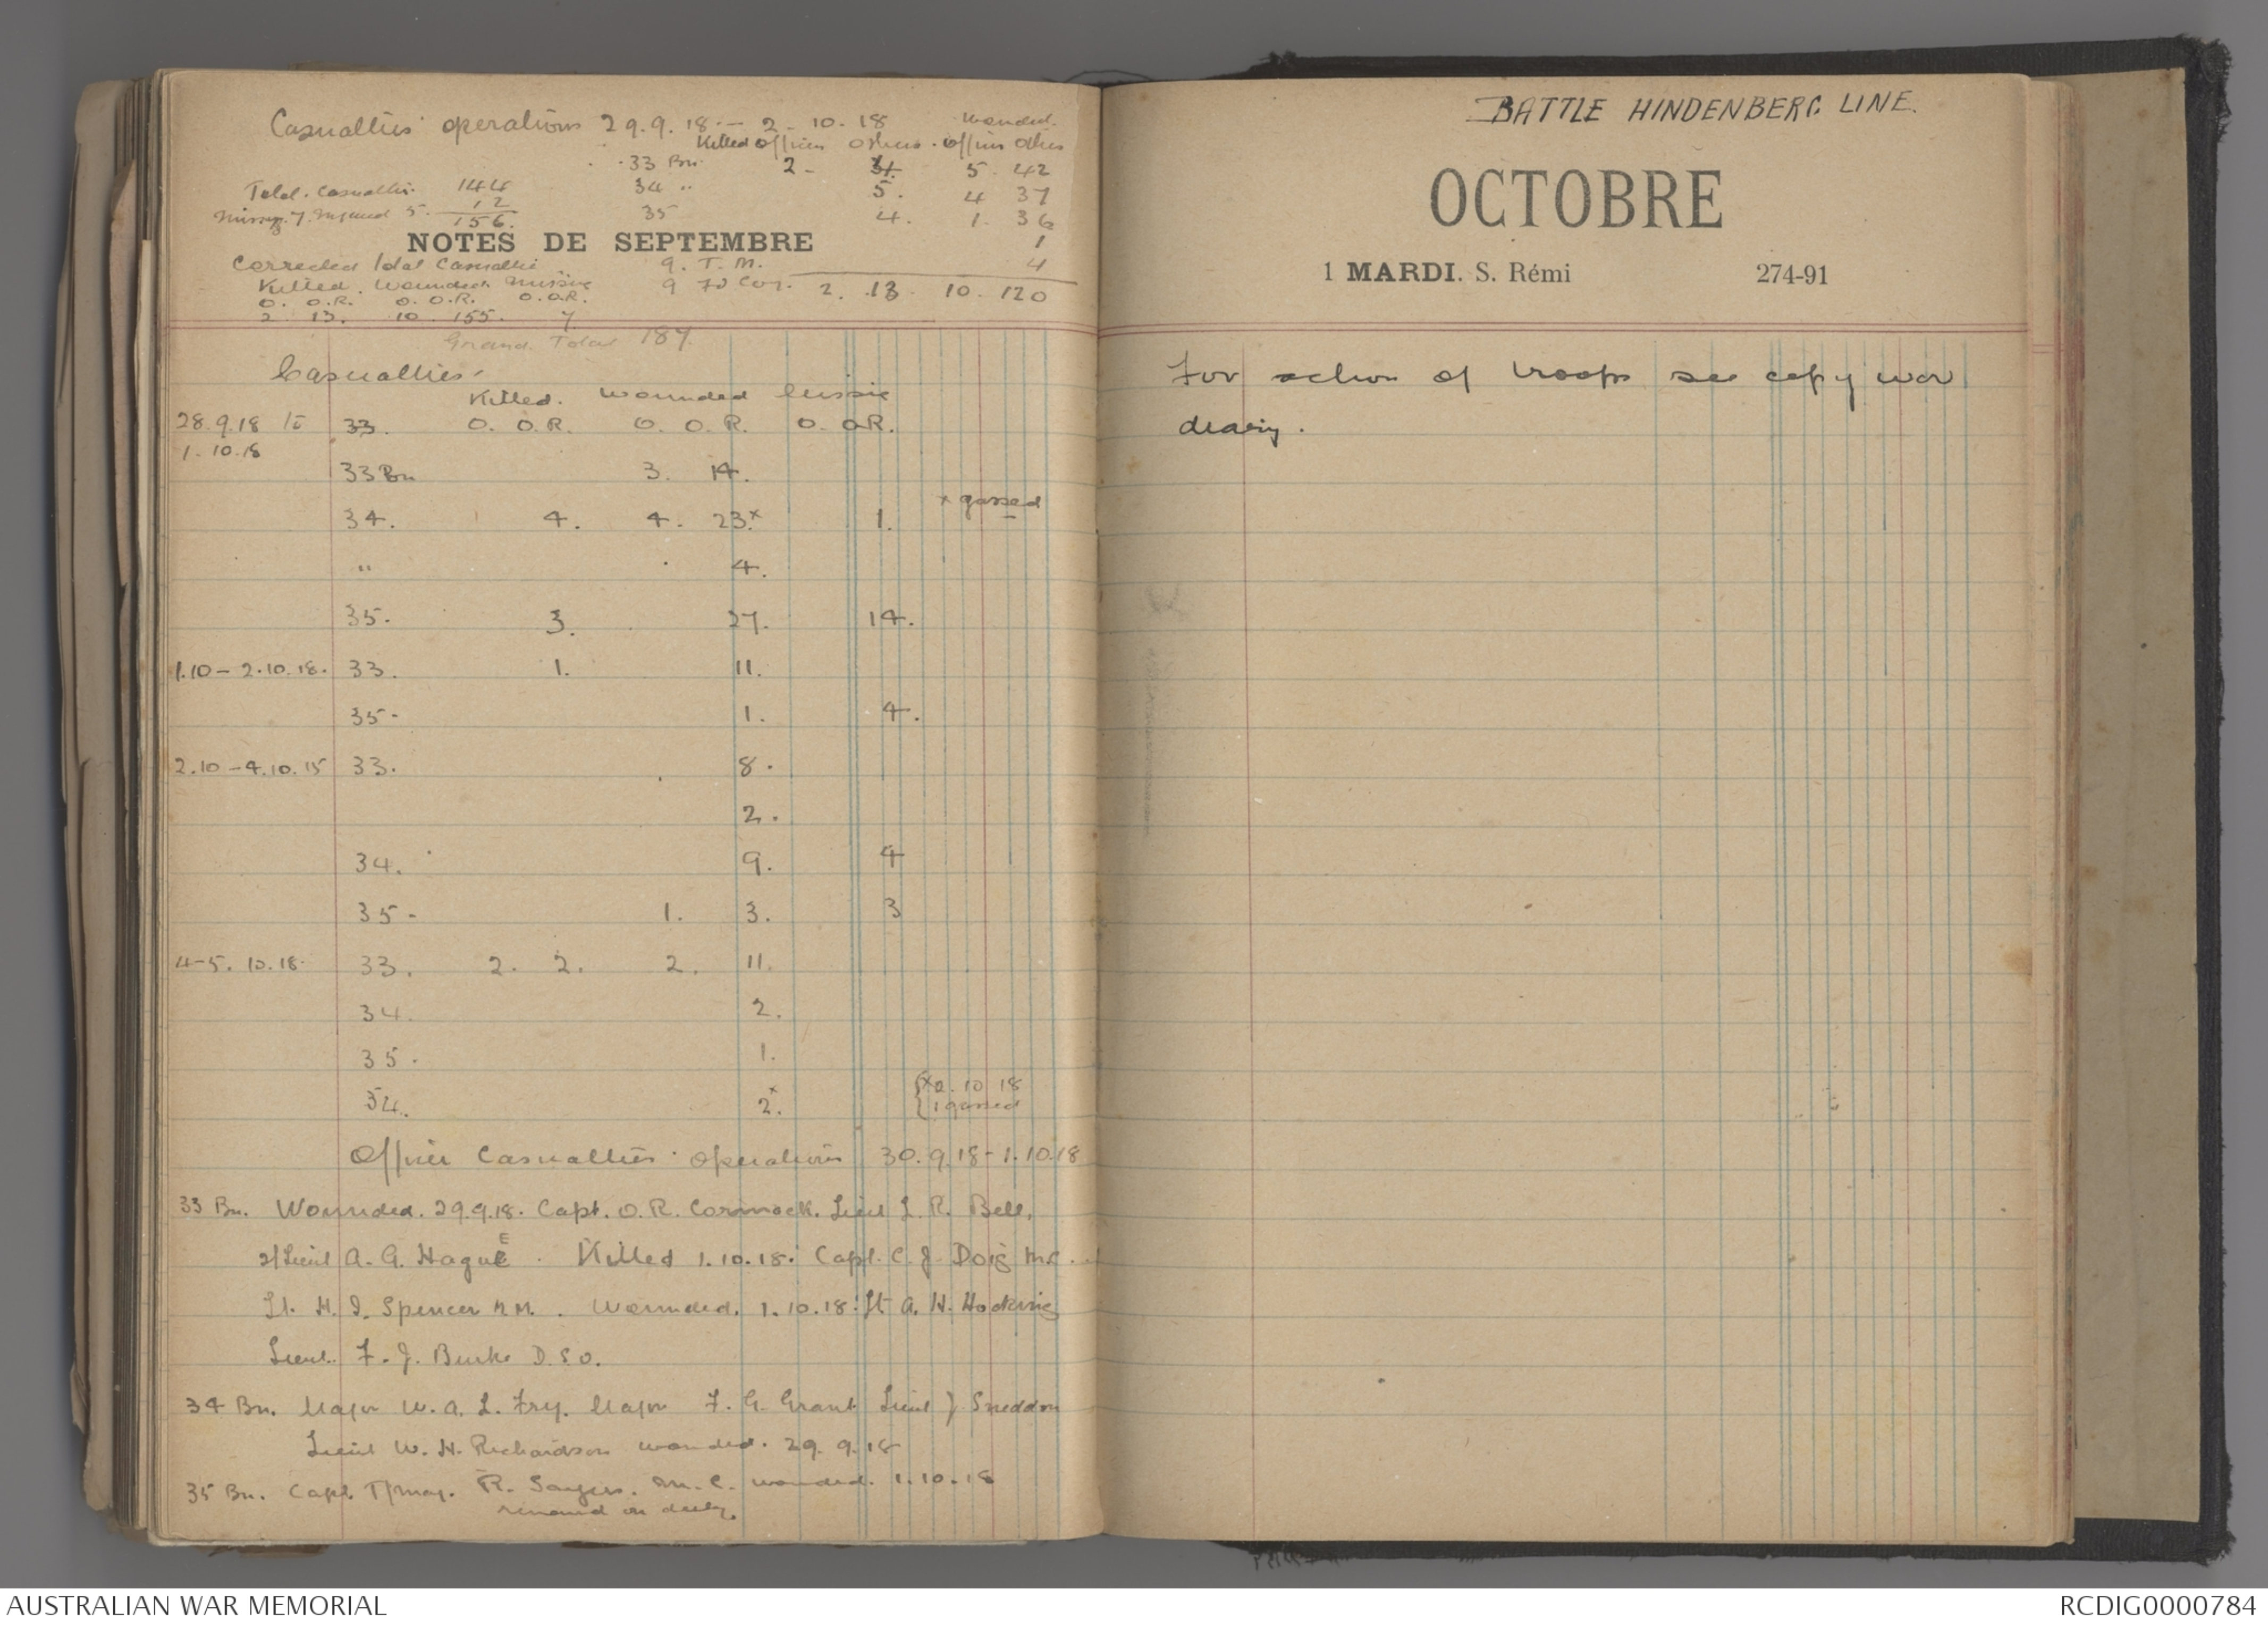 Casualties operations 29.9.18 – 2-10-18 Wounded.
Killed Officers Others. Officers Others
33 Bn. 2 - 5. 42
Total. Casualties. 144 34 " 5. 4 37
12
Missing 7. Injured 5. 156. 35 4. 1. 36
NOTES DE SEPTEMBRE 1
Corrected Total Casualties 9. T. M. 4
Killed. Wounded. Missing 9 Fd Coy. 2. 13. 10. 120
O. O.R. O. O.R. O. O.R.
2 13. 10. 155. 7
Grand Total 187.
Casualties.
Killed. Wounded Missing
28.9.18 to 33. O. O.R. O. O.R. O. O.R.
1.10.18
33 Bn 3. 14.
x gassed
34. 4. 4. 23x 1.
" 4.
35. 3. 27. 14.
1.10 – 2.10.18. 33. 1. 11.
35 - 1. 4.
2.10 – 4.10.15 33. 8.
2.
34. 9. 4
35 - 1. 3. 3
4-5.10.18. 33. 2. 2. 2. 11.
34. 2.
35. 1.
34. 2x. {x2.10 18
{1 gassed
Officer Casualties operations 30.9.18 - 1.10.18
33 Bn. Wounded. 29.9.18. Capt. O. R. Cormack. Lieut L. R. Bell.
2/Lieut A. G. Hague E. Killed 1.10.18: Capt. C. J. Doig M.C.
Lt. H. I. Spencer M.M. . Wounded. 1.10.18: Lt A. H. Hocking
Lieut. F. J. Burke D.S.O.
34 Bn. Major W. A. L. Fry. Major F. G. Grant Lieut J Sneddon
Lieut W. H. Richardson wounded. 29.9.18
35 Bn. Capt. T/Maj. R. Sayers. M.C. wounded. 1.10.18
remained on duty.
BATTLE HINDENBERG LINE.
OCTOBRE
1 MARDI. S. Rémi 274-91
For action of troops see copy war
deairy.
AUSTRALIAN WAR MEMORIAL RCDIG0000784